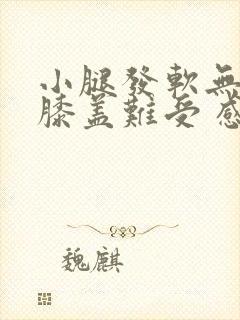 小腿發軟無
膝蓋難受感
魏麒